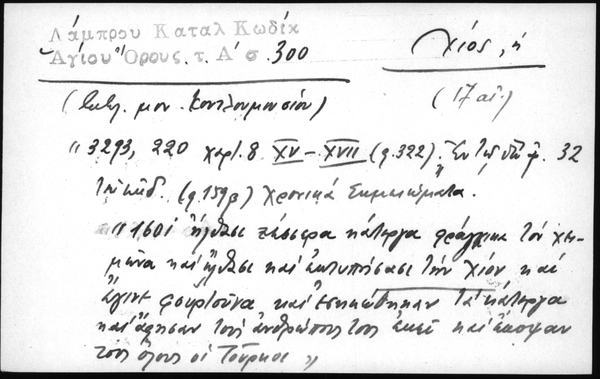 Λάμπρου Καταλ Κωδίκ
Ἁγίου Ὄρους. τ. Α´ σ. 300
Χίος, ἡ
(Βιβλ. μον. Κουτλουμουσίου)
(17 αἰ.)
"3293, 220 χαρτ. 8 XV – XVII (φ. 322). Ἐν τῷ φ. 32
τοῦ κώδ. (φ. 159β) Χρονικὰ Σημειώματα.
"1601 ἦλθασι τέσσερα κάτεργα φράγκικα τὸν χει-
μῶνα καὶ ἦλθασι καὶ ἐκτυπήσασι τὴν Χίον καὶ
ἔγινε φουρτοῦνα καὶ ἐσηκώθηκαν τὰ κάτεργα
καὶ ἄφησαν τοὺς ἀνθρώπους τους ἐκεῖ καὶ ἔκοψαν
τοὺς ὅλους οἱ Τοῦρκοι"